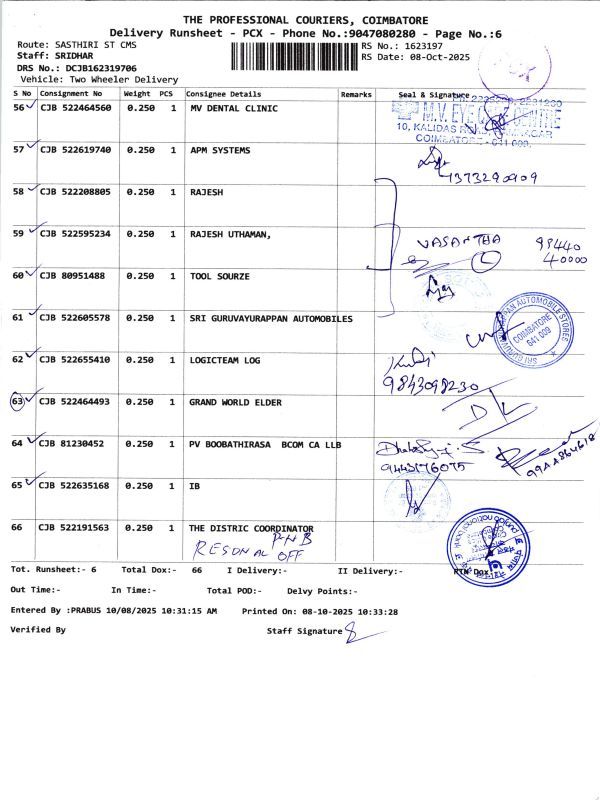 THE PROFESSIONAL COURIERS, COIMBATORE
Delivery Runsheet - PCX - Phone No.:9047080280 - Page No.:6
Route: SASTHIRI ST CMS
RS No.: 1623197
Staff: SRIDHAR
RS Date: 08-Oct-2025
DRS No.: DCJB162319706
Vehicle: Two Wheeler Delivery
PCX
S No Consignment No Weight PCS Consignee Details Remarks Seal & Signature
56 CJB 522464560 0.250 1 MV DENTAL CLINIC
M.V. EYE CENTRE
10, KALIDAS ROAD
COIMBATORE - 641 009.
57 CJB 522619740 0.250 1 APM SYSTEMS
7373290909
58 CJB 522208805 0.250 1 RAJESH
59 CJB 522595234 0.250 1 RAJESH UTHAMAN,
VASANTHA 99440
40000
60 CJB 80951488 0.250 1 TOOL SOURZE
61 CJB 522605578 0.250 1 SRI GURUVAYURAPPAN AUTOMOBILES
SRI GURUVAYURAPPAN AUTOMOBILE STORES
COIMBATORE
641 009
62 CJB 522655410 0.250 1 LOGICTEAM LOG
9843098230
63 CJB 522464493 0.250 1 GRAND WORLD ELDER
64 CJB 81230452 0.250 1 PV BOOBATHIRASA BCOM CA LLB
9443176075
65 CJB 522635168 0.250 1 IB
66 CJB 522191563 0.250 1 THE DISTRIC COORDINATOR
PNB
RESONAL OFF
Tot. Runsheet:- 6 Total Dox:- 66 I Delivery:- II Delivery:- RTN Dox:
Out Time:- In Time:- Total POD:- Delvy Points:-
Entered By :PRABUS 10/08/2025 10:31:15 AM Printed On: 08-10-2025 10:33:28
Verified By Staff Signature